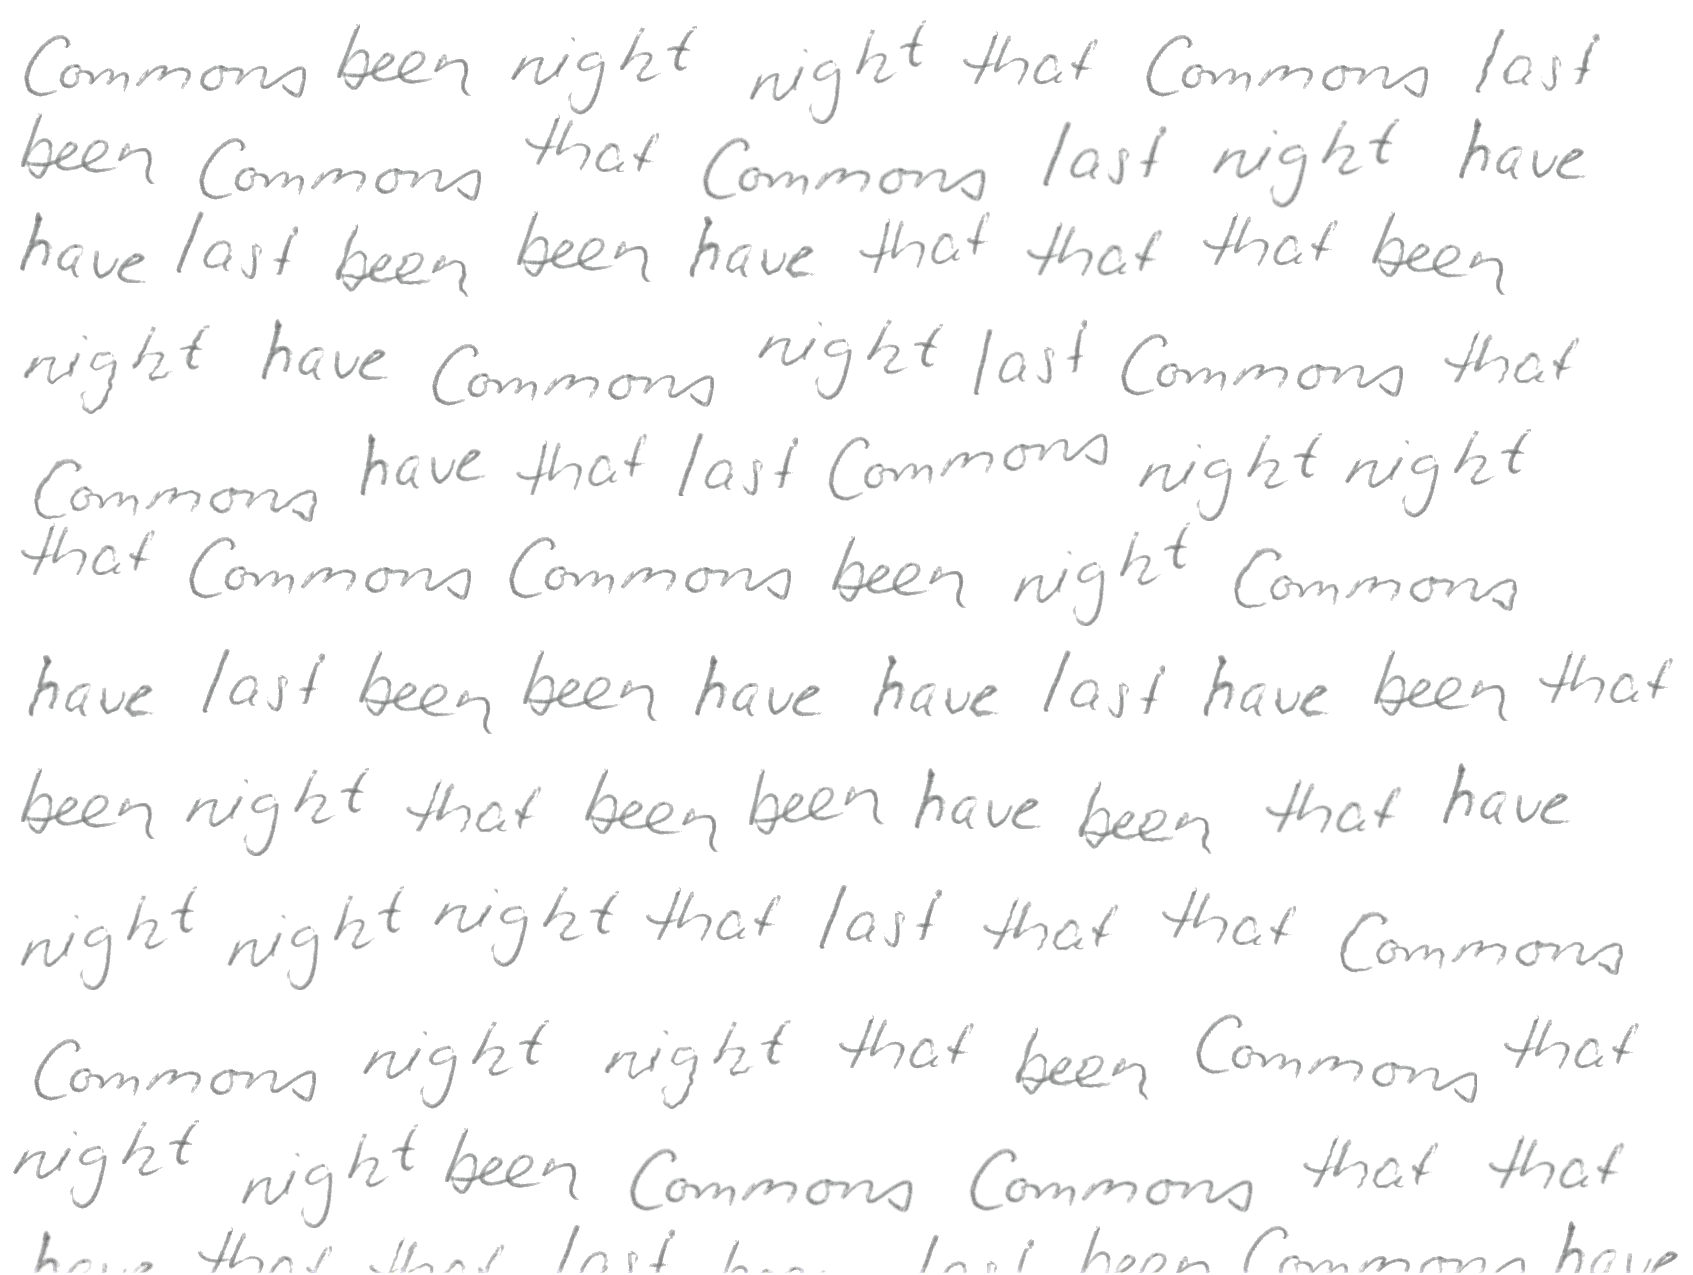 Commons been night night that Commons last
been Commons that Commons last night have
have last been been have that that that been
night have Commons night last Commons that
Commons have that last Commons night night
that Commons Commons been night Commons
have last been been have have last have been that
been night that been been have been that have
night night night that last that that Commons
Commons night night that been Commons that
night night been Commons Commons that that
have that that last last been Commons have